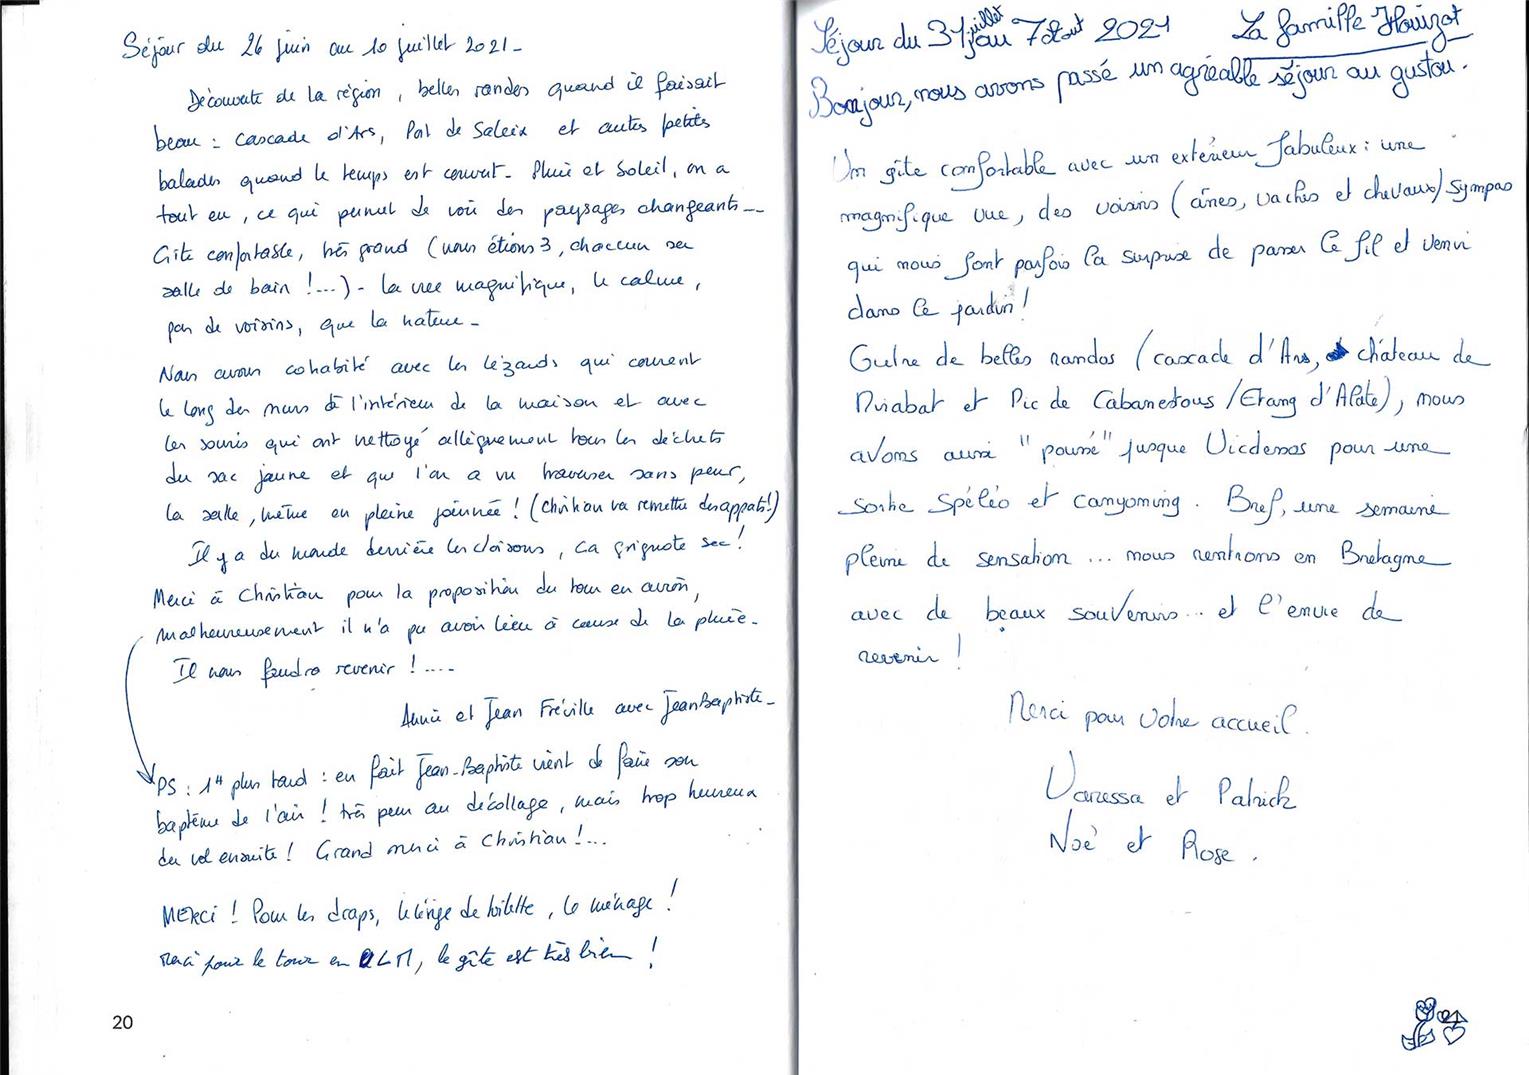 Séjour du 26 juin au 10 juillet 2021 -
Découverte de la région, belles randos quand il faisait
beau : cascade d'Ars, Port de Saleix et autres petites
balades quand le temps est couvert - Pluie et soleil, on a
tout eu, ce qui permet de voir des paysages changeants --
Gîte confortable, très grand (nous étions 3, chacun sa
salle de bain !...) - La vue magnifique, le calme,
pas de voisins, que la nature -
Nous avons cohabité avec les lézards qui courent
le long des murs à l'intérieur de la maison et avec
les souris qui ont nettoyé allègrement tous les déchets
du sac jaune et que l'on a vu traverser sans peur,
la salle, même en pleine journée ! (Christian va remettre des appats !)
Il y a du monde derrière les cloisons, ça grignote sec !
Merci à Christian pour la proposition du tour en avion,
malheureusement il n'a pu avoir lieu à cause de la pluie -
Il nous faudra revenir !....
Annie et Jean Fréville avec Jean Baptiste -
PS : 1H plus tard : en fait Jean-Baptiste vient de faire son
baptême de l'air ! très peur au décollage, mais trop heureux
du vol ensuite ! Grand merci à Christian !...
MERCI ! Pour les draps, le linge de toilette, le ménage !
Merci pour le tour en ULM, le gîte est très bien !
20
Séjour du 31 juillet au 7 Août 2021 La famille Houizot
Bonjour, nous avons passé un agréable séjour au gustou.
Un gîte confortable avec un extérieur fabuleux : une
magnifique vue, des voisins (ânes, vaches et chevaux) sympas
qui nous font parfois la surprise de passer le fil et venir
dans le jardin !
Outre de belles randos (cascade d'Ars, château de
Mirabat et Pic de Cabanatous / Etang d'Alate), nous
avons aussi "poussé" jusque Vicdessos pour une
sortie Spéléo et canyoning. Bref, une semaine
pleine de sensation ... nous rentrons en Bretagne
avec de beaux souvenirs ... et l'envie de
revenir !
Merci pour votre accueil.
Vanessa et Patrick
Noé et Rose.
21